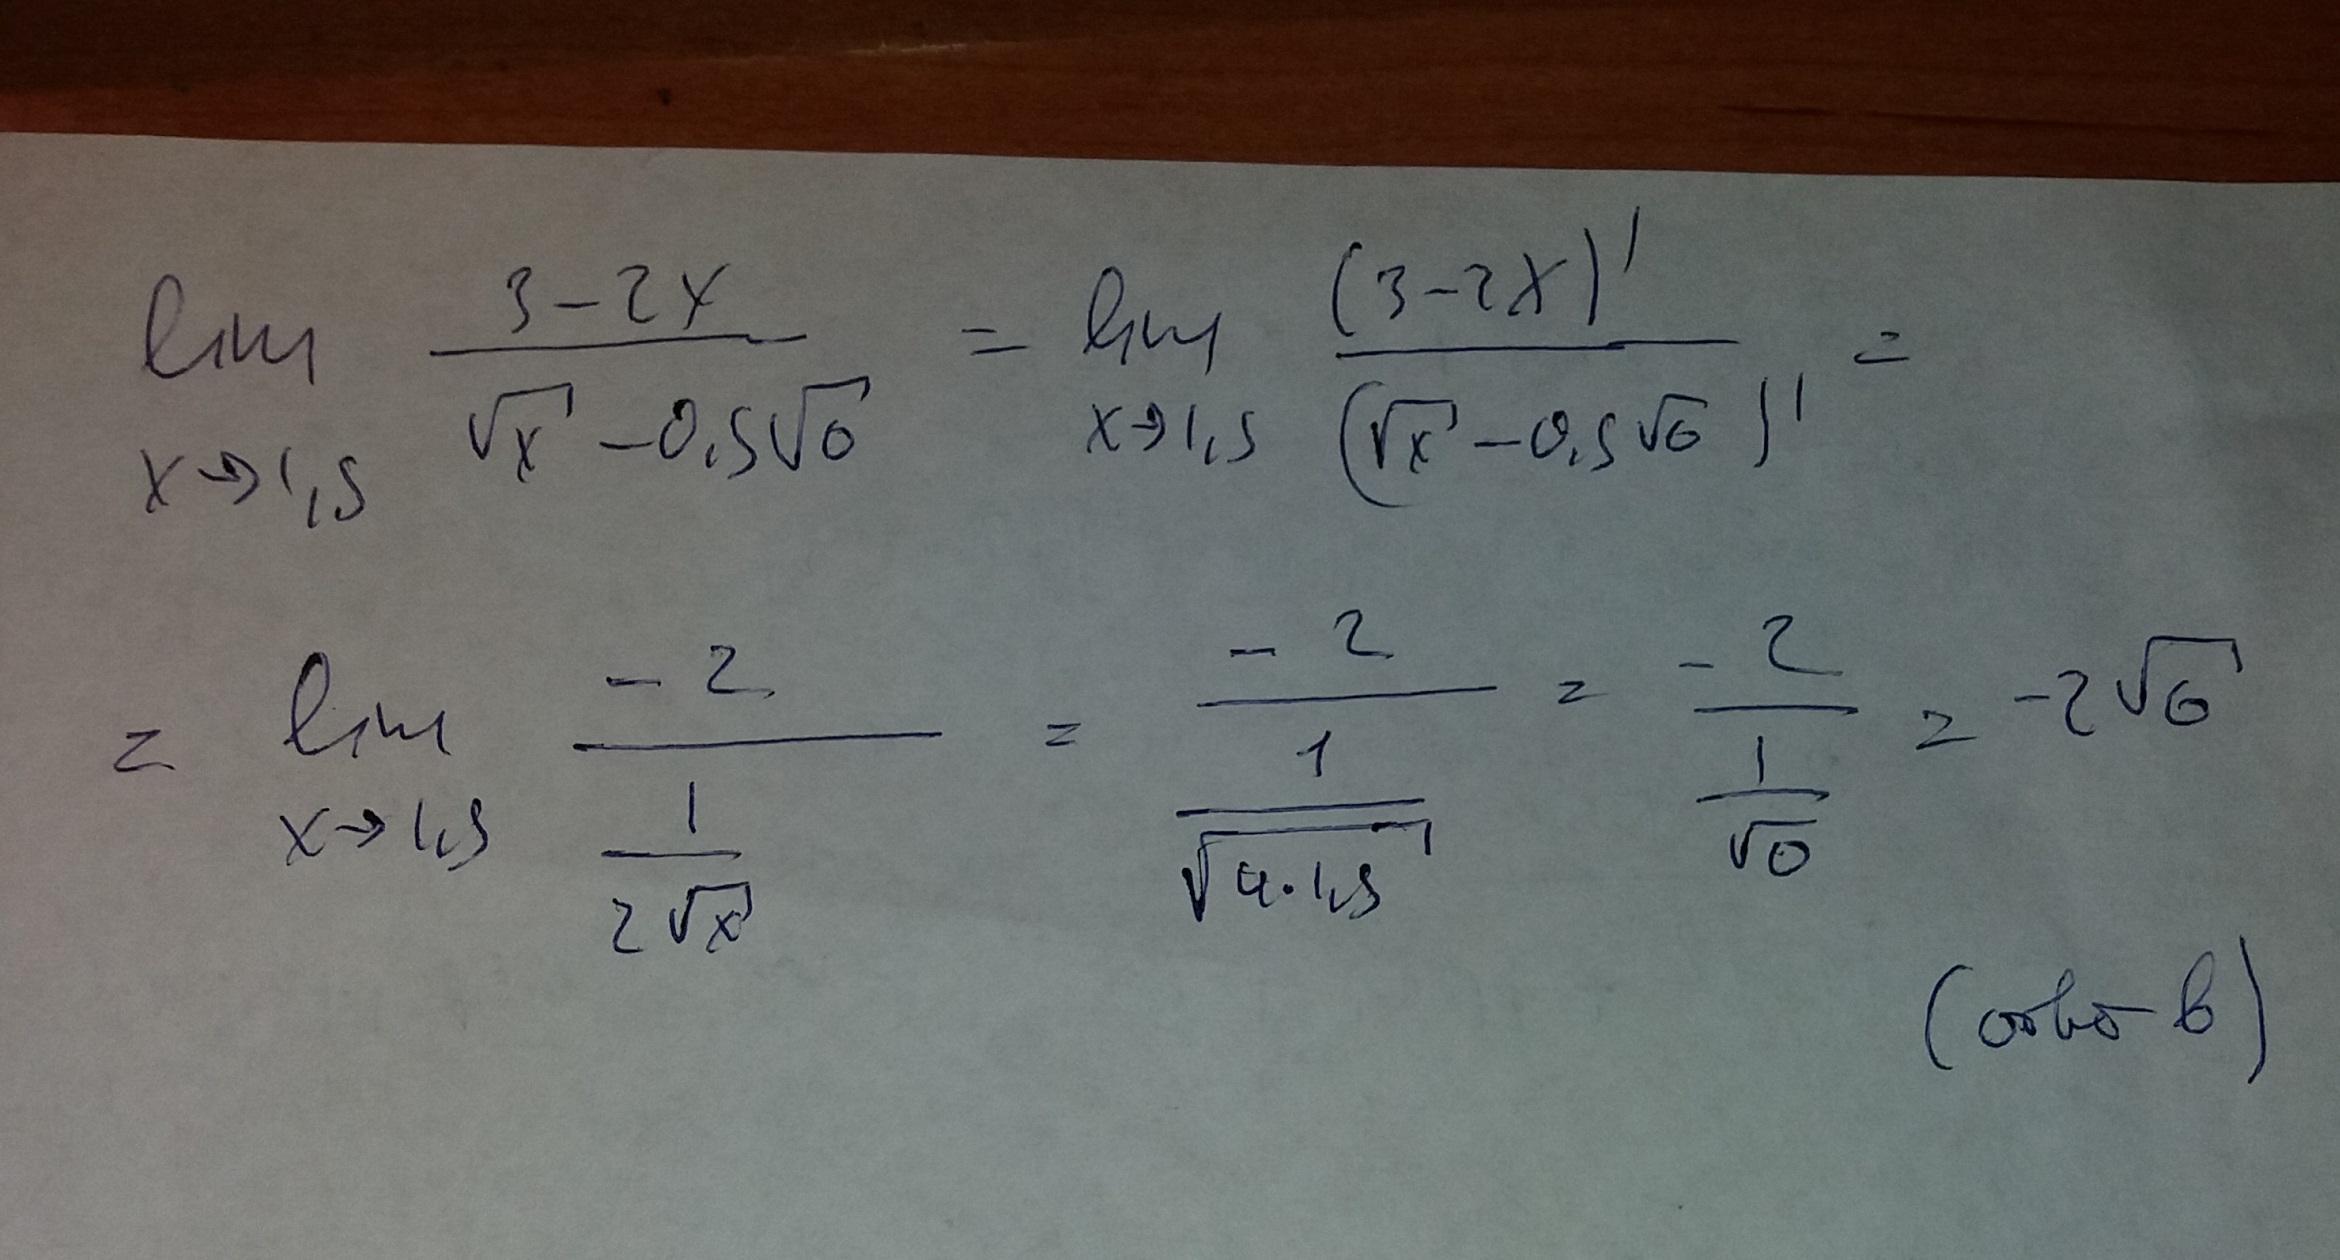 lim x→1,5 (3-2x)/(√x -0,5√6) = lim x→1,5 (3-2x)'/(√x -0,5√6)' =
= lim x→1,5 -2/(1/(2√x)) = -2/(1/√(4·1,5)) = -2/(1/√6) = -2√6
(отв в)